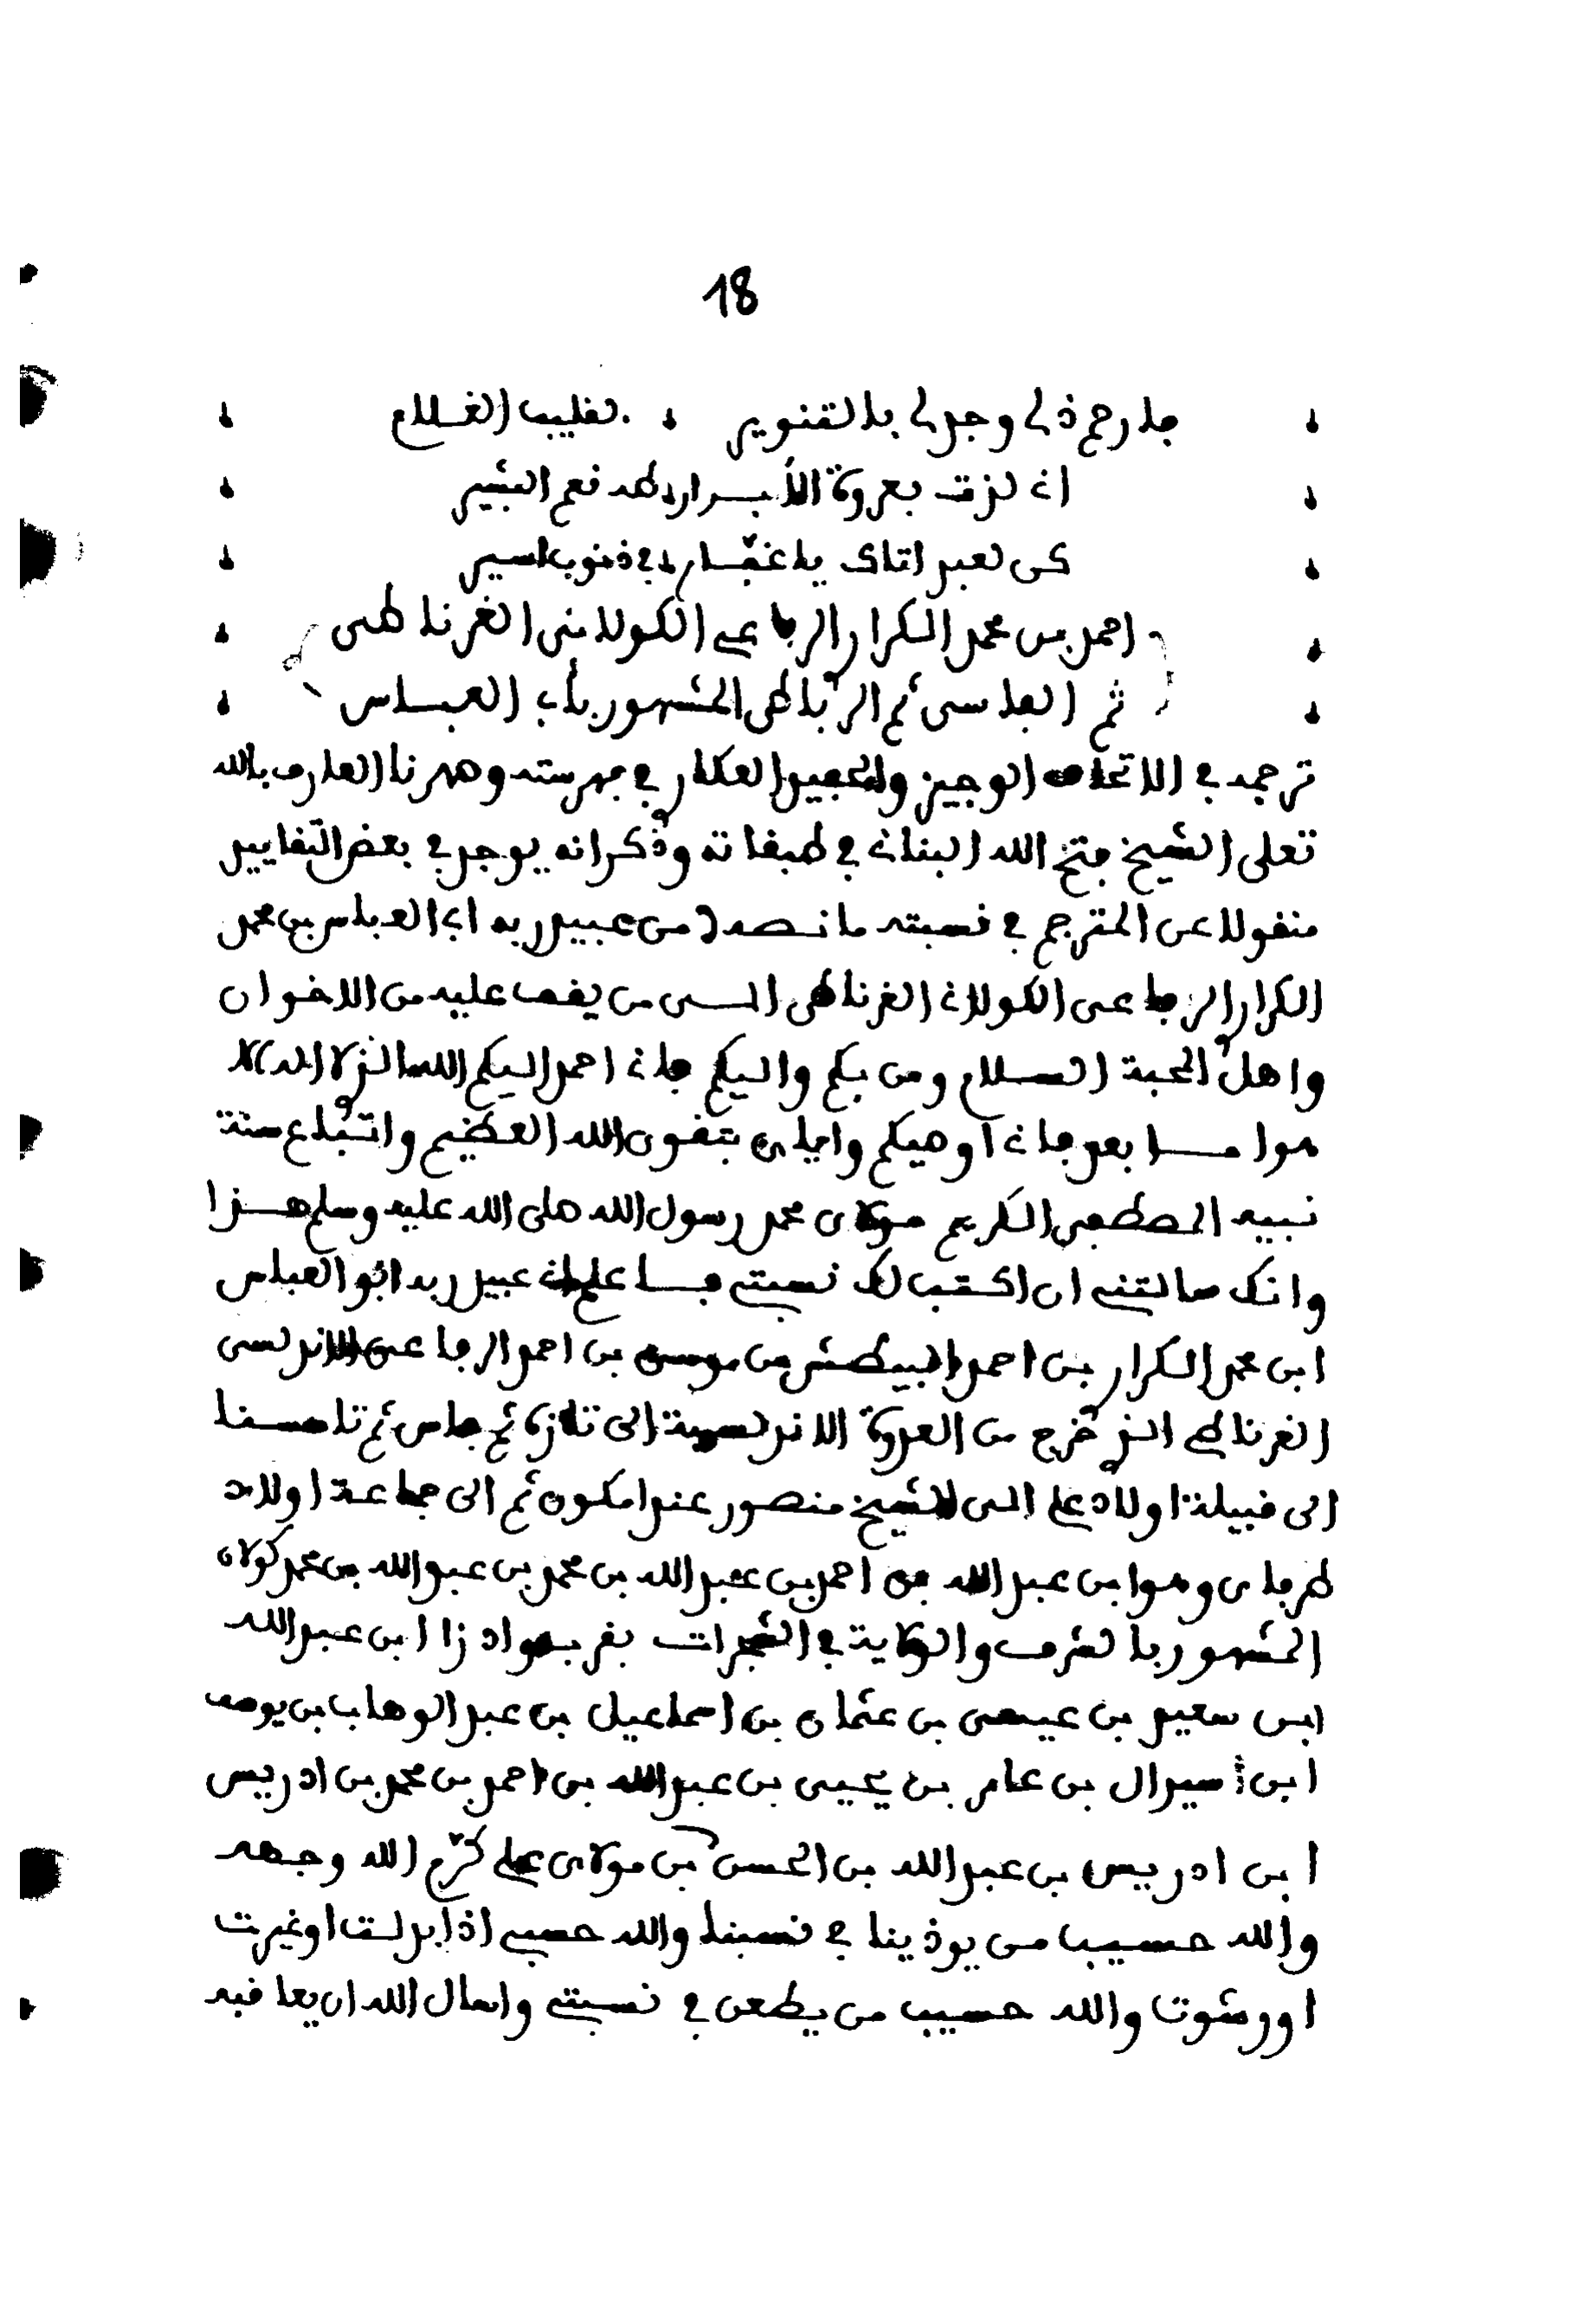 18
فارحم ذلي وجد لي بالتنوير ، لقلبي الغلاع
اني لذت بعروة الأبرار طه نعم البشير
كن لعبد اتاك يا غفار في ذنوب اسير
احمد بن محمد الكرار الرفاعي الكولاني الغرناطي
ثم الفاسي ثم الرباطي المشهور بأبي العباس
ترجمه في الاتحاف الوجيز والحفيد العكاري في فهرسته وصهرنا العارف بالله
تعلى الشيخ فتح الله البناني في طبقاته وذكر انه يوجد في بعض التقاييد
منقولا عن المترجم في نسبته ما نصه من عبيد ربه ابي العباس بن محمد
الكرار الرفاعي الكولاني الغرناطي الى من يقف عليه من الاخوان
واهل المحبة السلام ومن بكم واليكم فاني احمد اليكم الله الذي لا اله الا
هو اما بعد فاني اوصيكم واياي بتقوى الله العظيم واتباع سنة
نبيه المصطفى الكريم مولاي محمد رسول الله صلى الله عليه وسلم هذا
وانك سالتني ان اكتب لك نسبتي فاعلم اني عبيد ربه ابو العباس
ابن محمد الكرار بن احمد البيطش بن موسى بن احمد الرفاعي الاندلسي
الغرناطي الذي خرج من العدوة الاندلسية الى تازى ثم فاس ثم تامسنا
الى قبيلة اولاد علي الى الشيخ منصور عند امكون ثم الى جماعة اولاد
طرفاى وهوا بن عبد الله بن احمد بن عبد الله بن محمد بن عبد الله بن محمد كولان
المشهور بالشرف والولاية في الشجرات بقرب واد زا ابن عبد الله
ابن سعيد بن عيسى بن عثمان بن اسماعيل بن عبد الوهاب بن يوسف
ابن أسيدال بن عامر بن يحيى بن عبد الله بن احمد بن محمد بن ادريس
ابن ادريس بن عبد الله بن الحسن بن مولاى علي كرّم الله وجهه
والله حسيب من يوذينا في نسبنا والله حسبي اذا بدلت او غيرت
او رشوت والله حسيب من يطعن في نسبتي واسال الله ان يعاقبه